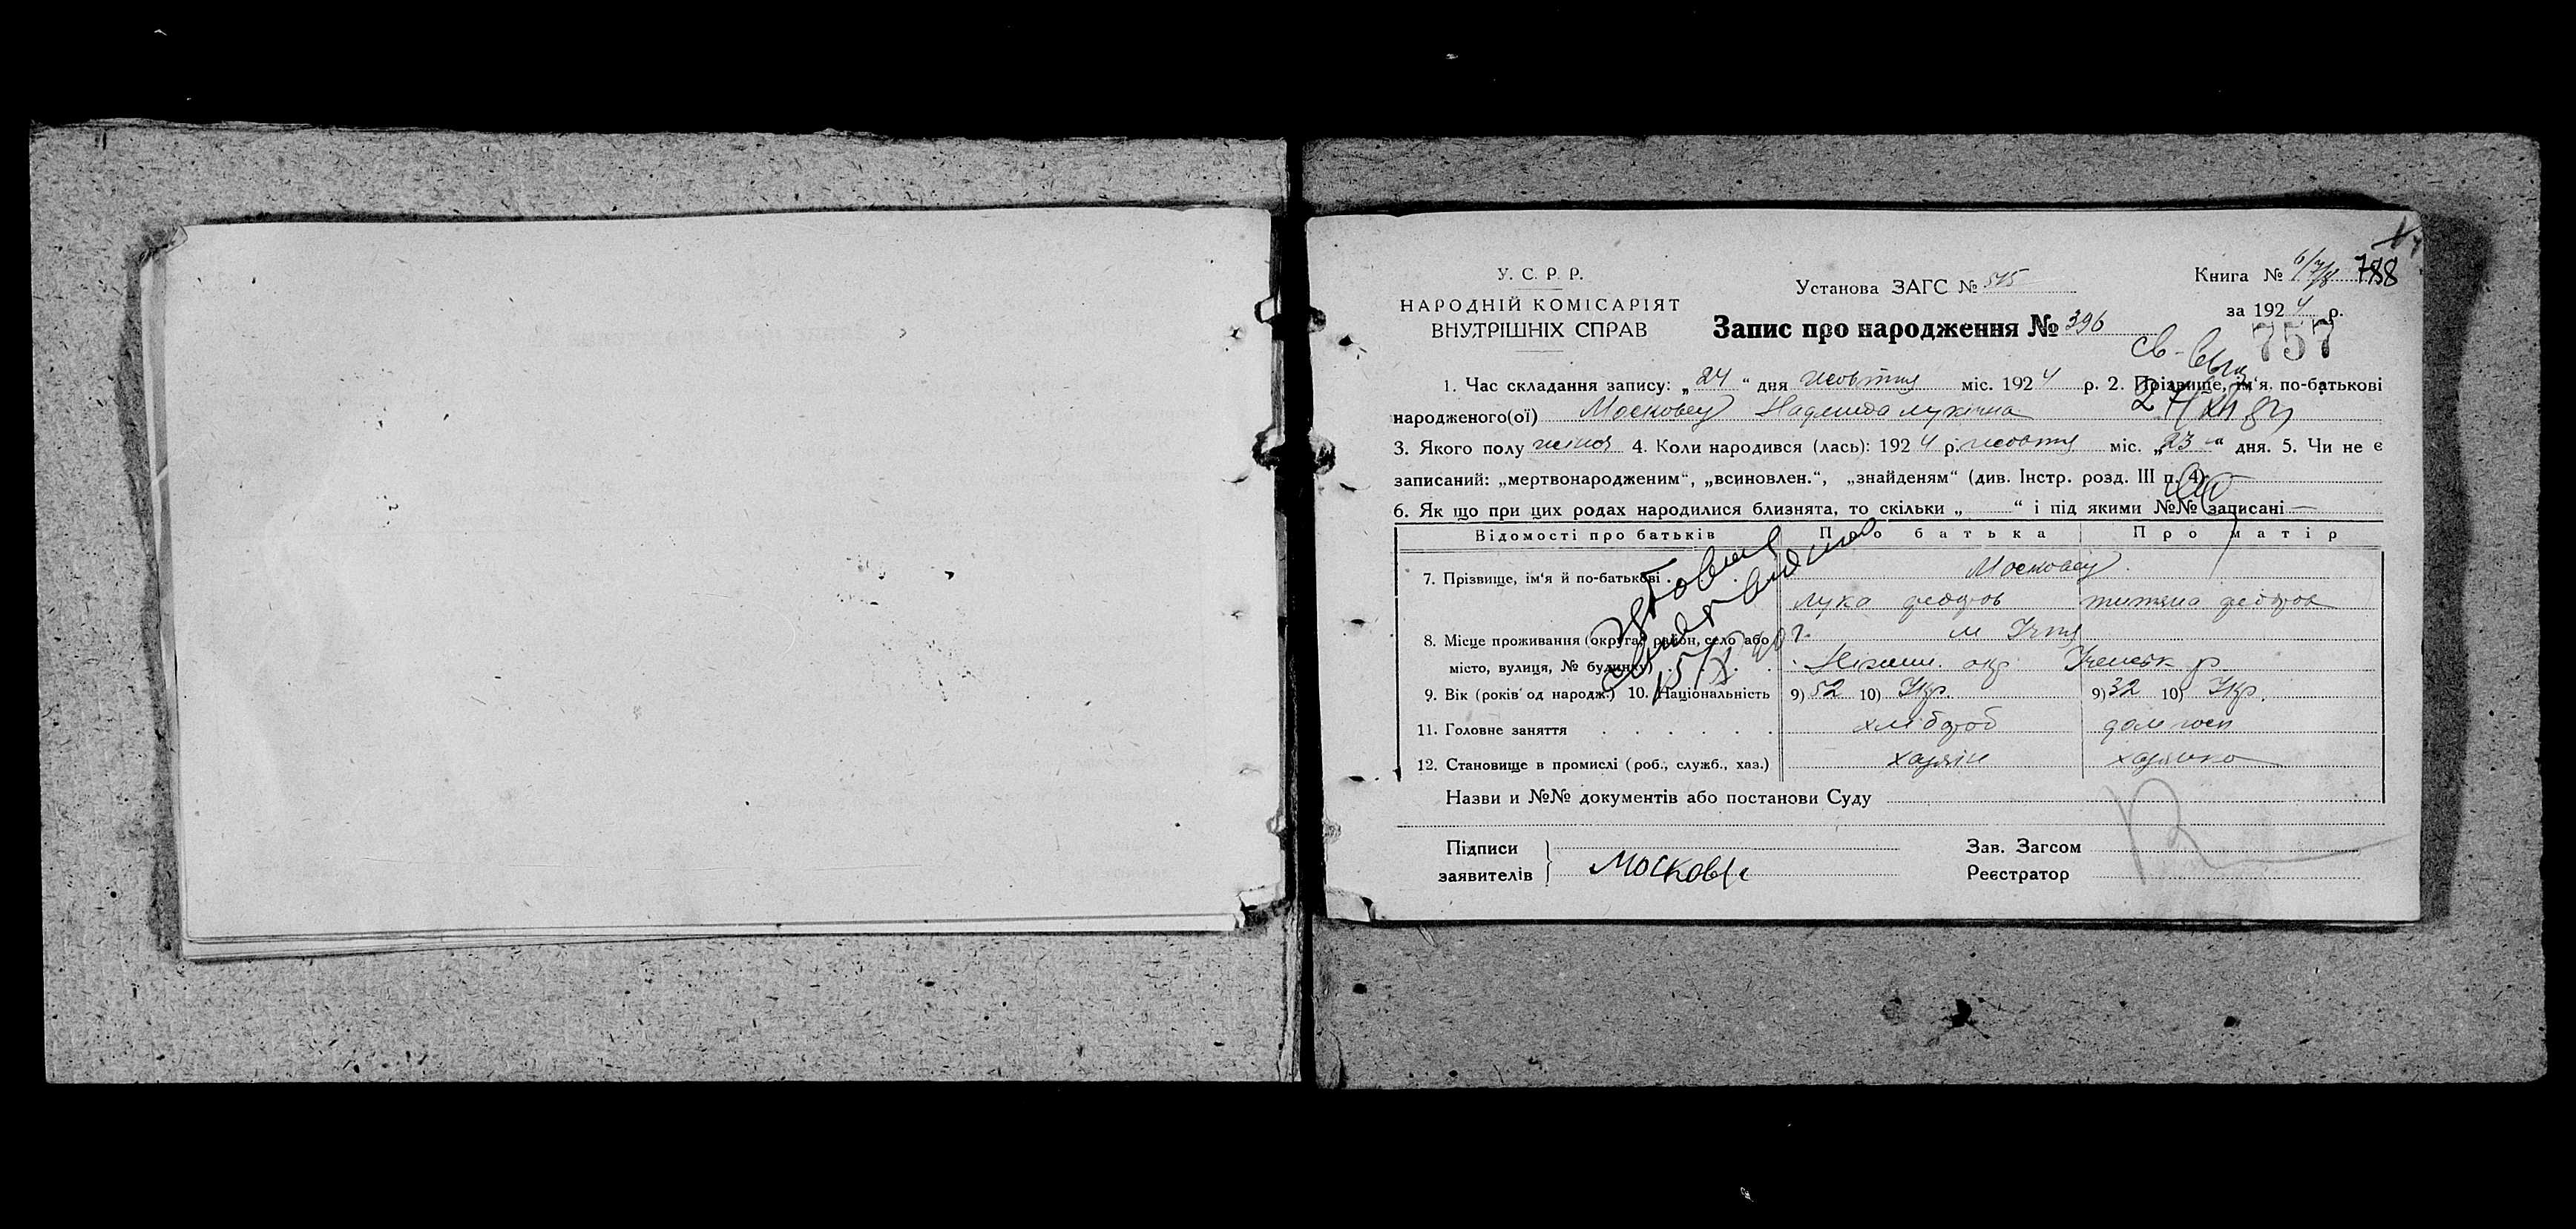 У. С. Р. Р.
НАРОДНІЙ КОМІСАРІЯТ
ВНУТРІШНІХ СПРАВ
Установа ЗАГС №
Книга № 6/7/8 788
за 1924 р.
Запис про народження № 396
757
1. Час складання запису: „24“ дня жовтня міс. 1924 р. 2. Прізвище, ім‘я по-батькові
народженого(ої) Московец Надежда Лукічна
3. Якого полу жіноч 4. Коли народився (лась): 1924 р. жовтня міс. „23“ дня. 5. Чи не є
записаний: „мертвонародженим“, „всиновлен.“, „знайденям“ (див. Інстр. розд. III п. 4)
6. Як що при цих родах народилися близнята, то скільки „ “ і під якими №№ записані —
Відомості про батьків Про батька Про матір
7. Прізвище, ім‘я й по-батькові Московец
Лука федоров татяна федоров
8. Місце проживання (округа, район, село або м Ічня
місто, вулиця, № будинку) Ніжин. окр. Іченськ р
9. Вік (років од народж.) 10. Національність 9) 52 10) Укр. 9) 32 10) Укр.
11. Головне заняття хлібороб дом госп
12. Становище в промислі (роб., служб., хаз.) хазяін хазяйка
Назви и №№ документів або постанови Суду
Підписи
заявителів
Зав. Загсом
Реєстратор